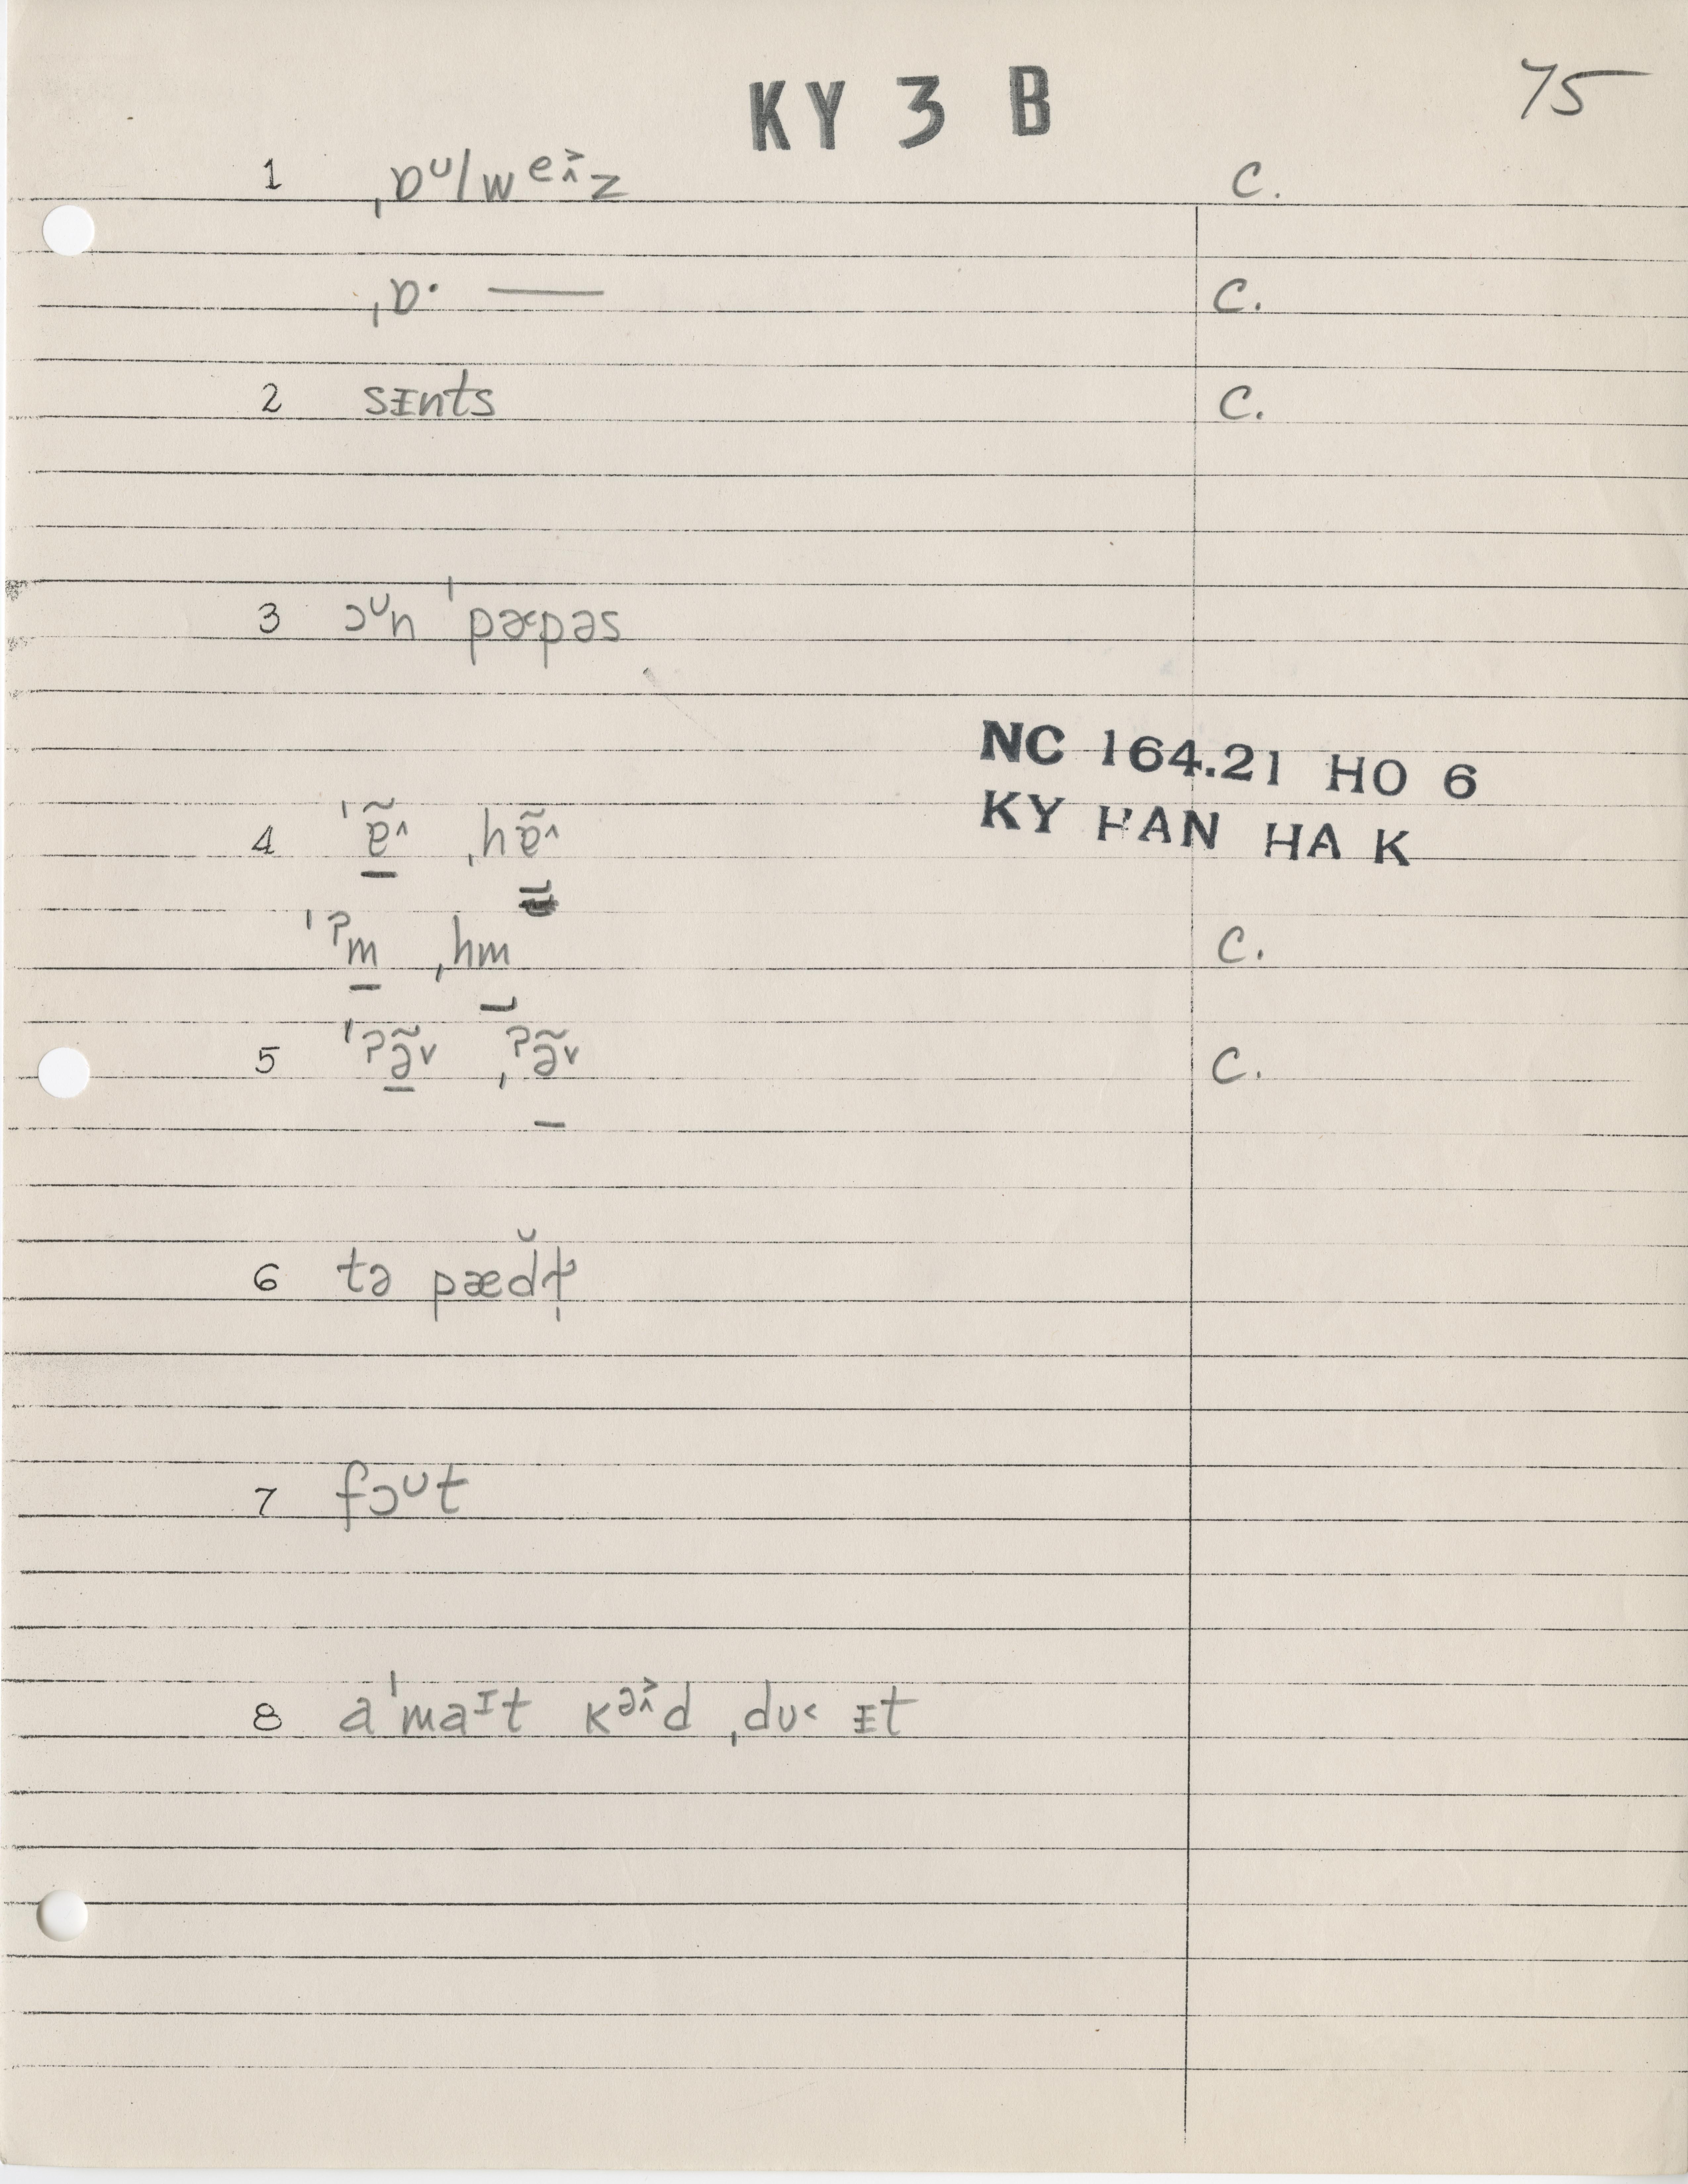 KY 3 B
75
1 ˌɒᶷlweɪ̂z C.
ˌɒ· — C.
2 sɪnts C.
3 ɔᶷn ˈpəpəs
NC 164.21 HO 6
KY HAN HA K
4
ˈʔm ˌhm C.
5 ˈʔə̃˅ ˌʔə̃˅ C.
6 tə pæd
7 fɔᶷt
8 aˈmaᶦt ˌdʊ˂ ɪt